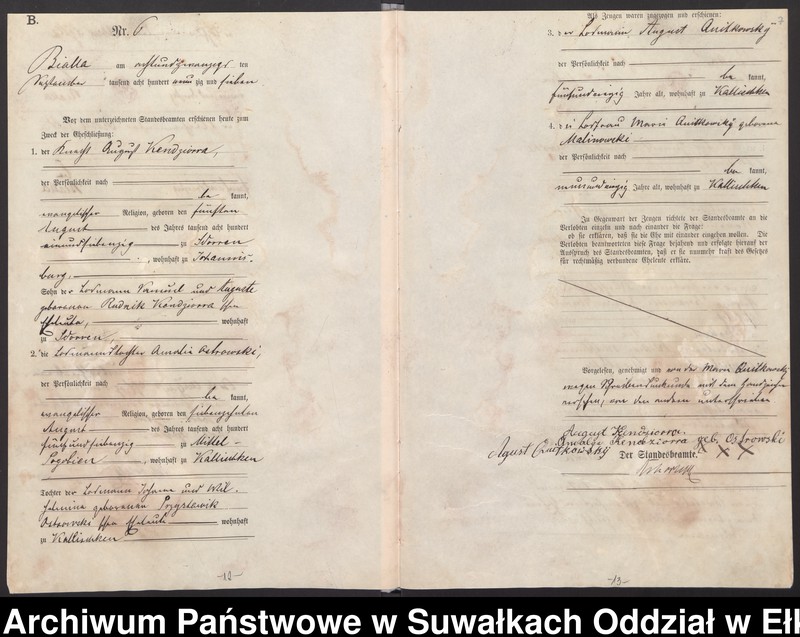 B.
Nr. 6
Bialla am achtundzwanzigst ten
tausend acht hundert neun zig und sieben
Vor dem unterzeichneten Standesbeamten erschienen heute zum
Zweck der Eheschließung:
1. der Knecht August Kendziorra,
der Persönlichkeit nach
be kannt,
evangelischer Religion, geboren den fünften
August des Jahres tausend acht hundert
einundsiebenzig zu Sdorren
, wohnhaft zu Johannis-
burg,
Sohn der Losmann Samuel und Auguste
geborenen Rudnik Kendziorra schen
Eheleute, wohnhaft
zu Sdorren
2. die Losmannstochter Amalie Ostrowski,
der Persönlichkeit nach
be kannt,
evangelischer Religion, geboren den siebenzehnten
August des Jahres tausend acht hundert
fünfundsiebenzig zu Mittel-
Pogobien, wohnhaft zu Kallischken
Tochter der Losmann Johann und Wil-
helmine geborenen
Ostrowski schen Eheleute wohnhaft
zu Kallischken
-12-
7
Als Zeugen waren zugezogen und erschienen:
3. der Losmann August
der Persönlichkeit nach
be kannt,
Jahre alt, wohnhaft zu Kallischken
4. die Losfrau Marie geborene
Malinowski
der Persönlichkeit nach
be kannt,
Jahre alt, wohnhaft zu Kallischken
In Gegenwart der Zeugen richtete der Standesbeamte an die
Verlobten einzeln und nach einander die Frage:
ob sie erklären, daß sie die Ehe mit einander eingehen wollen. Die
Verlobten beantworteten diese Frage bejahend und erfolgte hierauf der
Ausspruch des Standesbeamten, daß er sie nunmehr kraft des Gesetzes
für rechtmäßig verbundene Eheleute erkläre.
Vorgelesen, genehmigt und von der Marie
wegen Schreibensunkunde mit dem Handzeichen
versehen, von den andern unterschrieben
August Kendziorra.
Amalie Kendziorra geb. Ostrowski
Agust X X X
Der Standesbeamte.
-13-
Archiwum Państwowe w Suwałkach Oddział w Ełk